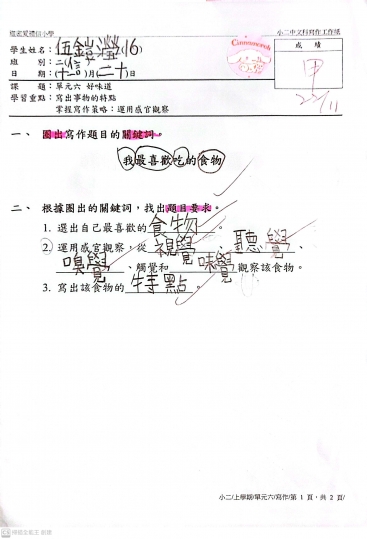 小二中文科寫作工作紙
學生姓名：伍鎧瀅(16)
成績
班別：二(信)
甲
日期：(十二)月(二十)日
22/11
課題：單元六 好味道
學習重點：寫出事物的特點
掌握寫作策略：運用感官觀察
Cinnamoroll
一、 圈出寫作題目的關鍵詞。
我最喜歡吃的食物
二、 根據圈出的關鍵詞，找出題目要求。
1. 選出自己最喜歡的食物。
2. 運用感官觀察，從視覺、聽覺、
嗅覺、觸覺和味覺觀察該食物。
3. 寫出該食物的特點。
小二/上學期/單元六/寫作/第 1 頁，共 2 頁/